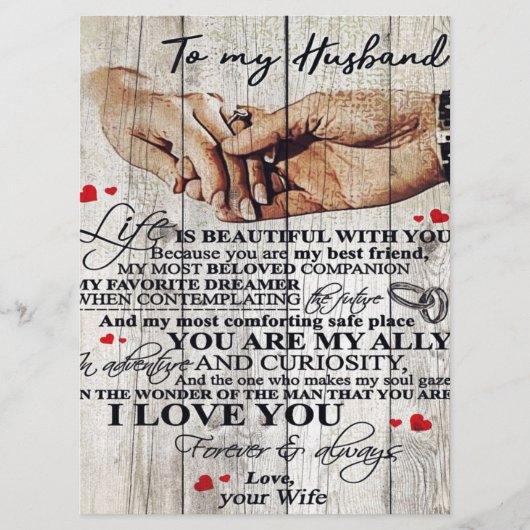 To my Husband
Life IS BEAUTIFUL WITH YOU
Because you are my best friend,
MY MOST BELOVED COMPANION
MY FAVORITE DREAMER
WHEN CONTEMPLATING the future
And my most comforting safe place
YOU ARE MY ALLY
In adventure AND CURIOSITY,
And the one who makes my soul gaze
IN THE WONDER OF THE MAN THAT YOU ARE
I LOVE YOU
Forever & always
Love,
your Wife